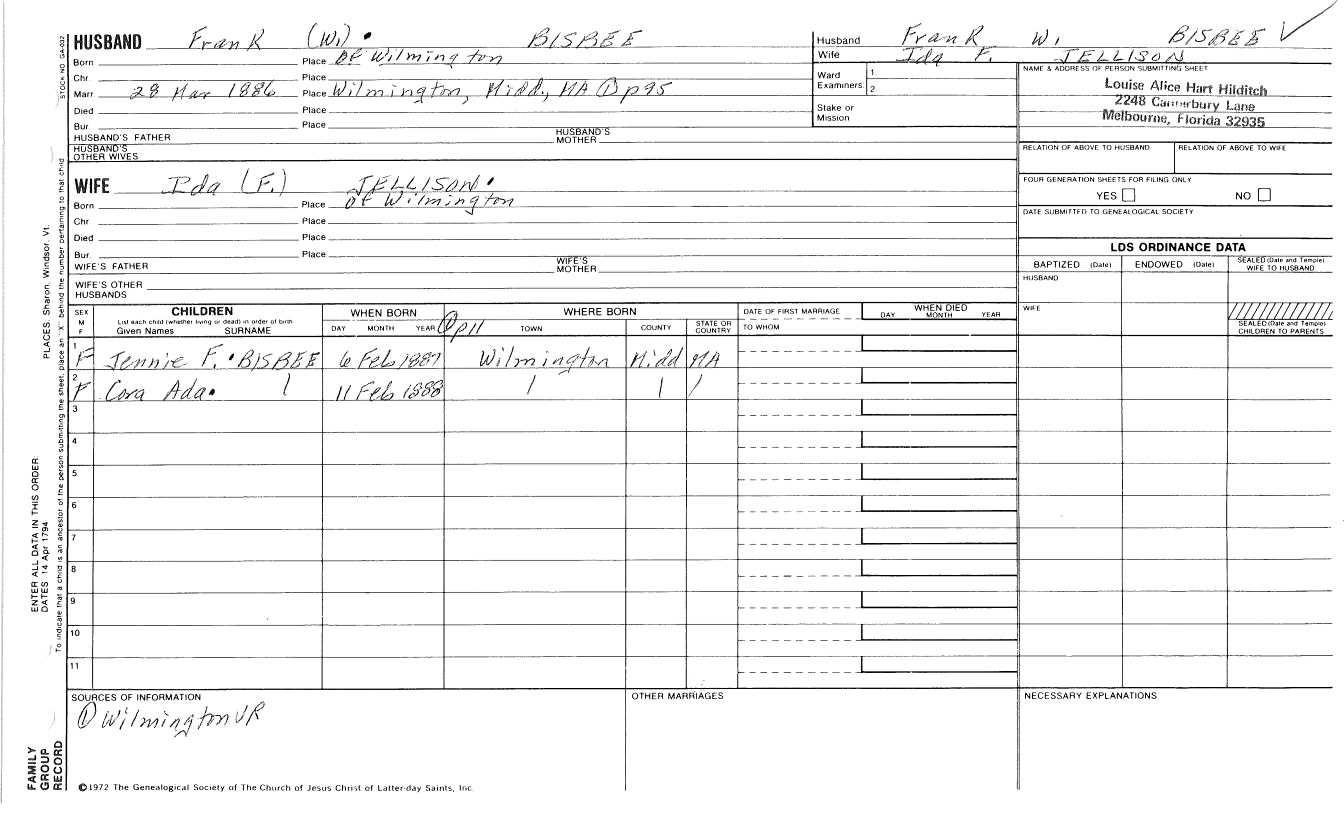 HUSBAND Frank (W.) • BISBEE
Born Place Of Wilmington
Chr. Place
Marr. 28 Mar 1886 Place Wilmington, Midd., MA ① p95
Died Place
Bur. Place
HUSBAND'S FATHER HUSBAND'S MOTHER
HUSBAND'S OTHER WIVES
Husband Frank W. BISBEE ✓
Wife Ida F. JELLISON
Ward Examiners 1 2
Stake or Mission
NAME & ADDRESS OF PERSON SUBMITTING SHEET
Louise Alice Hart Hilditch
2248 Canterbury Lane
Melbourne, Florida 32935
RELATION OF ABOVE TO HUSBAND RELATION OF ABOVE TO WIFE
FOUR GENERATION SHEETS FOR FILING ONLY
YES NO
DATE SUBMITTED TO GENEALOGICAL SOCIETY
WIFE Ida (F.) JELLISON •
Born Place Of Wilmington
Chr. Place
Died Place
Bur. Place
WIFE'S FATHER WIFE'S MOTHER
WIFE'S OTHER HUSBANDS
LDS ORDINANCE DATA
BAPTIZED (Date) ENDOWED (Date) SEALED (Date and Temple) WIFE TO HUSBAND
HUSBAND
WIFE
SEALED (Date and Temple) CHILDREN TO PARENTS
SEX M F CHILDREN WHEN BORN WHERE BORN DATE OF FIRST MARRIAGE WHEN DIED
List each child (whether living or dead) in order of birth
Given Names SURNAME DAY MONTH YEAR ① p11 TOWN COUNTY STATE OR COUNTRY TO WHOM DAY MONTH YEAR
1 F Jennie F. • BISBEE 6 Feb 1887 Wilmington Midd MA
2 F Cora Ada • 11 Feb 1888
3
4
5
6
7
8
9
10
11
SOURCES OF INFORMATION OTHER MARRIAGES NECESSARY EXPLANATIONS
① Wilmington VR
©1972 The Genealogical Society of The Church of Jesus Christ of Latter-day Saints, Inc.
FAMILY GROUP RECORD
ENTER ALL DATA IN THIS ORDER
DATES 14 Apr 1794
PLACES Sharon, Windsor, Vt.
To indicate that a child is an ancestor of the person submitting the sheet, place an "X" behind the number pertaining to that child
STOCK NO. GA-032